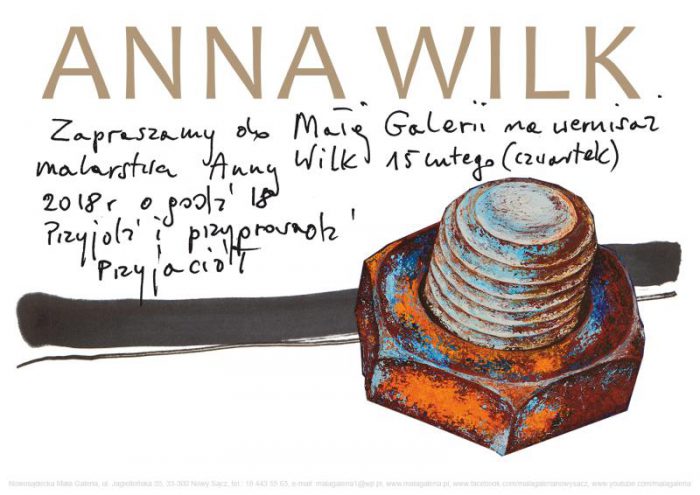 ANNA WILK
Zapraszamy do Małej Galerii na wernisaż
malarstwa Anny Wilk 15 lutego (czwartek)
2018 r o godz 18
Przyjdź i przyprowadź
Przyjaciół
Nowosądecka Mała Galeria, ul. Jagiellońska 35, 33-300 Nowy Sącz, tel.: 18 443 65 65, e-mail: malagaleria1@wp.pl, www.malagaleria.pl, www.facebook.com/malagalerianowysacz, www.youtube.com/malagaleria